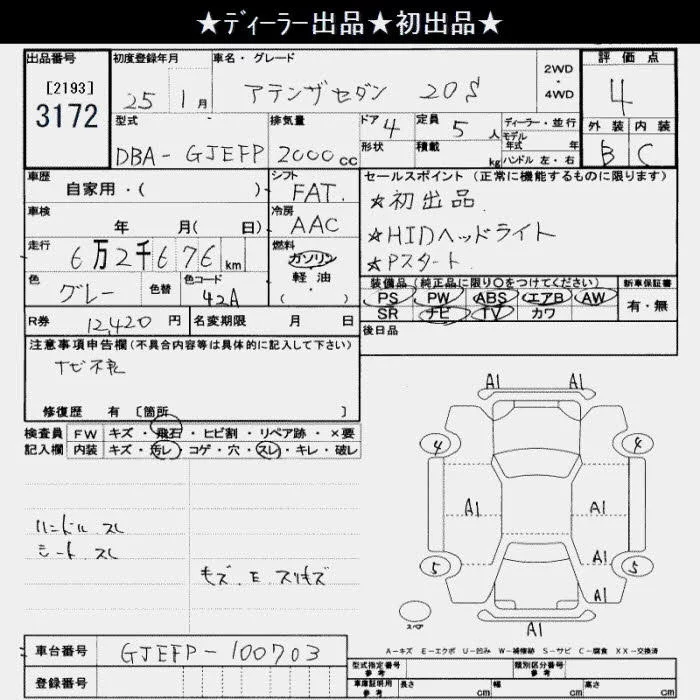 ★ディーラー出品★初出品★
出品番号
[2193]
3172
初度登録年月
25 1月
車名・グレード
アテンザセダン 20S
2WD
・
4WD
評価点
4
外装 内装
B C
型式
DBA-GJEFP
排気量
2000cc
ドア 4
形状
定員 5人
積載 kg
ディーラー・並行
モデル
年式 年
ハンドル 左・右
車歴
自家用・( )
シフト
FAT
車検
年 月( 日)
冷房
AAC
走行
6万2千676km
燃料
ガソリン
軽油
( ・ )
色
グレー
色替
色コード
42A
R券 12,420円
名変期限 月 日
セールスポイント(正常に機能するものに限ります)
★初出品
★HIDヘッドライト
★Pスタート
装備品(純正品に限り○をつけてください)
PS PW ABS エアB AW
SR ナビ TV カワ
新車保証書
有・無
後日品
注意事項申告欄(不具合内容等は具体的に記入して下さい)
ナビ不良
修復歴 有 〔箇所 〕
検査員
記入欄
FW キズ・飛石・ヒビ割・リペア跡・×要
内装 キズ・汚レ・コゲ・穴・スレ・キレ・破レ
ハンドル スレ
シート スレ
キズ E スリキズ
A1 A1
4 4
A1 A1
A1
5 5
A1
A1
スペア
A-キズ E-エクボ U-凹み W-補修跡 S-サビ C-腐食 XX-交換済
車台番号 GJEFP-100703
登録番号
型式指定番号
参考
類別区分番号
参考
車庫証明用
参考
長さ cm 幅 cm 高さ cm